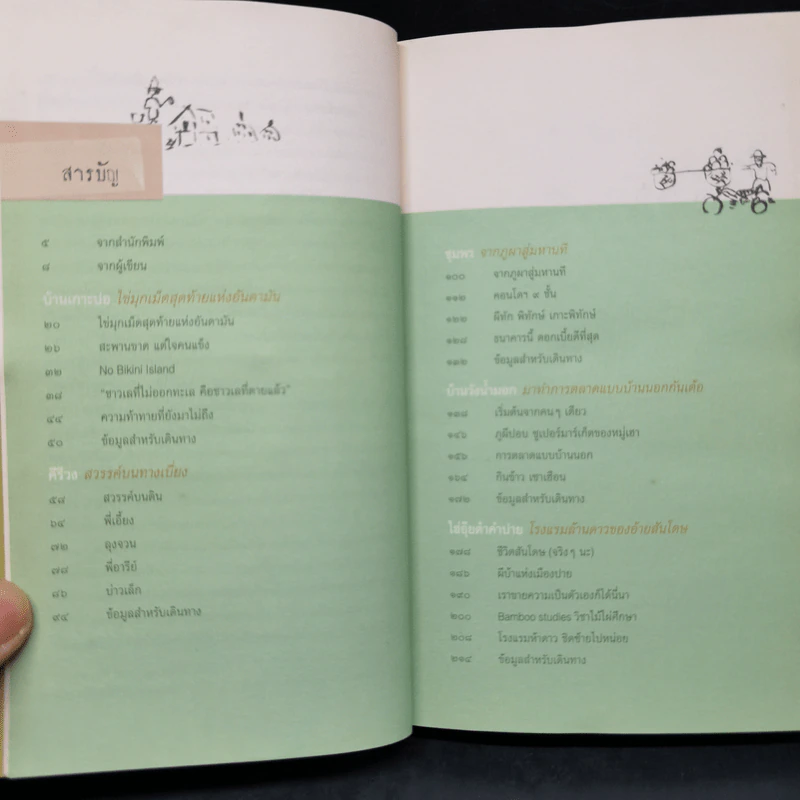 สารบัญ
๕ จากสำนักพิมพ์
๘ จากผู้เขียน
บ้านเกาะบ่อ ไข่มุกเม็ดสุดท้ายแห่งอันดามัน
๒๐ ไข่มุกเม็ดสุดท้ายแห่งอันดามัน
๒๖ สะพานขาด แต่ใจคนแข็ง
๓๒ No Bikini Island
๓๘ "ชาวเลที่ไม่ออกทะเล คือชาวเลที่ตายแล้ว"
๔๔ ความท้าทายที่ยังมาไม่ถึง
๕๑ ข้อมูลสำหรับเดินทาง
คีรีวง สวรรค์บนทางเบี่ยง
๕๘ สวรรค์บนดิน
๖๔ พี่เอี้ยง
๗๒ ลุงจวน
๗๘ พี่อารีย์
๘๖ บ่าวเล็ก
๙๔ ข้อมูลสำหรับเดินทาง
ชุมพร จากภูผาสู่มหานที
๑๐๐ จากภูผาสู่มหานที
๑๑๒ คอนโดฯ ๙ ชั้น
๑๒๒ ผีทัก พิทักษ์ เกาะพิทักษ์
๑๒๘ ธนาคารนี้ ดอกเบี้ยดีที่สุด
๑๓๒ ข้อมูลสำหรับเดินทาง
บ้านวังน้ำมอก มาทำการตลาดแบบบ้านนอกกันเด้อ
๑๓๘ เริ่มต้นจากคนๆ เดียว
๑๔๖ ภูผีปอบ ซูเปอร์มาร์เก็ตของหมู่เฮา
๑๕๖ การตลาดแบบบ้านนอก
๑๖๔ กินข้าว เซาเฮือน
๑๗๒ ข้อมูลสำหรับเดินทาง
ไฮ่อุ๊ยคำคำปาย โรงแรมล้านดาวของอ้ายสันโดษ
๑๗๘ ชีวิตสันโดษ (จริงๆ นะ)
๑๘๖ ผีบ้าแห่งเมืองปาย
๑๙๐ เราขายความเป็นตัวเองก็ได้นี่นา
๒๐๐ Bamboo studies วิชาไม้ไผ่ศึกษา
๒๐๘ โรงแรมห้าดาว ชิดซ้ายไปหน่อย
๒๑๔ ข้อมูลสำหรับเดินทาง